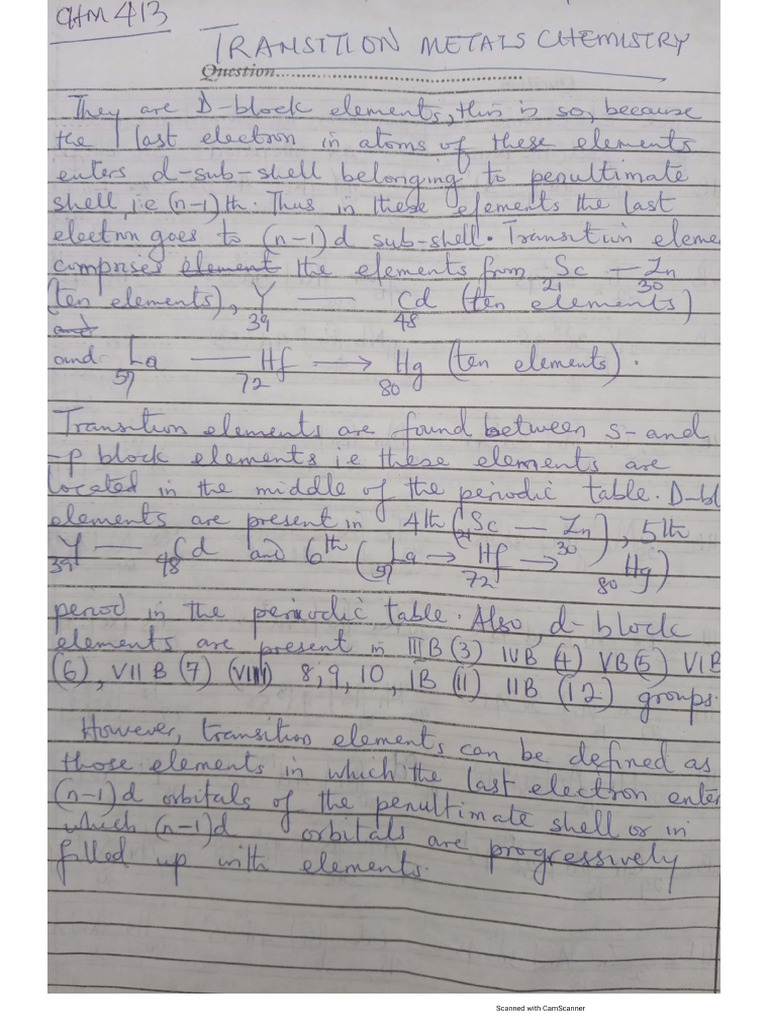 CHM 413
TRANSITION METALS CHEMISTRY
Question
They are D-block elements, this is so, because
the last electron in atoms of these elements
enters d-sub-shell belonging to penultimate
shell, i.e (n-1)th. Thus in these elements the last
electron goes to (n-1)d sub-shell. Transition eleme
comprises element the elements from Sc — Zn
21 30
(ten elements), Y — Cd (ten elements)
39 48
and
and La — Hf → Hg (ten elements).
57 72 80
Transition elements are found between s- and
-p block elements i.e these elements are
located in the middle of the periodic table. D-bl
elements are present in 4th (21Sc — Zn), 5th
30
39Y — 48Cd and 6th (57La → Hf → Hg)
72 80
period in the periodic table. Also, d-block
elements are present in IIIB (3) IVB (4) VB (5) VIB
(6), VIIB (7) (VIII) 8, 9, 10, IB (11) IIB (12) groups.
However, transition elements can be defined as
those elements in which the last electron enter
(n-1)d orbitals of the penultimate shell or in
which (n-1)d orbitals are progressively
filled up with elements.
Scanned with CamScanner